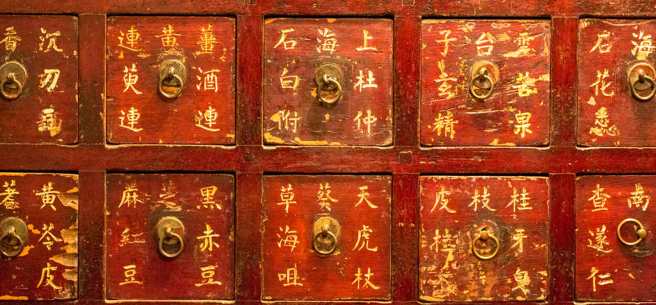 沉
香
薑酒連
黃
連萸連
上杜仲
海
石白附
雲苦果
台
子玄精
海
石花
黃苓皮
黑赤豆
芝
麻紅豆
天虎杖
葵
草海咀
桂牙皂
枝
皮桂
南
查遂仁